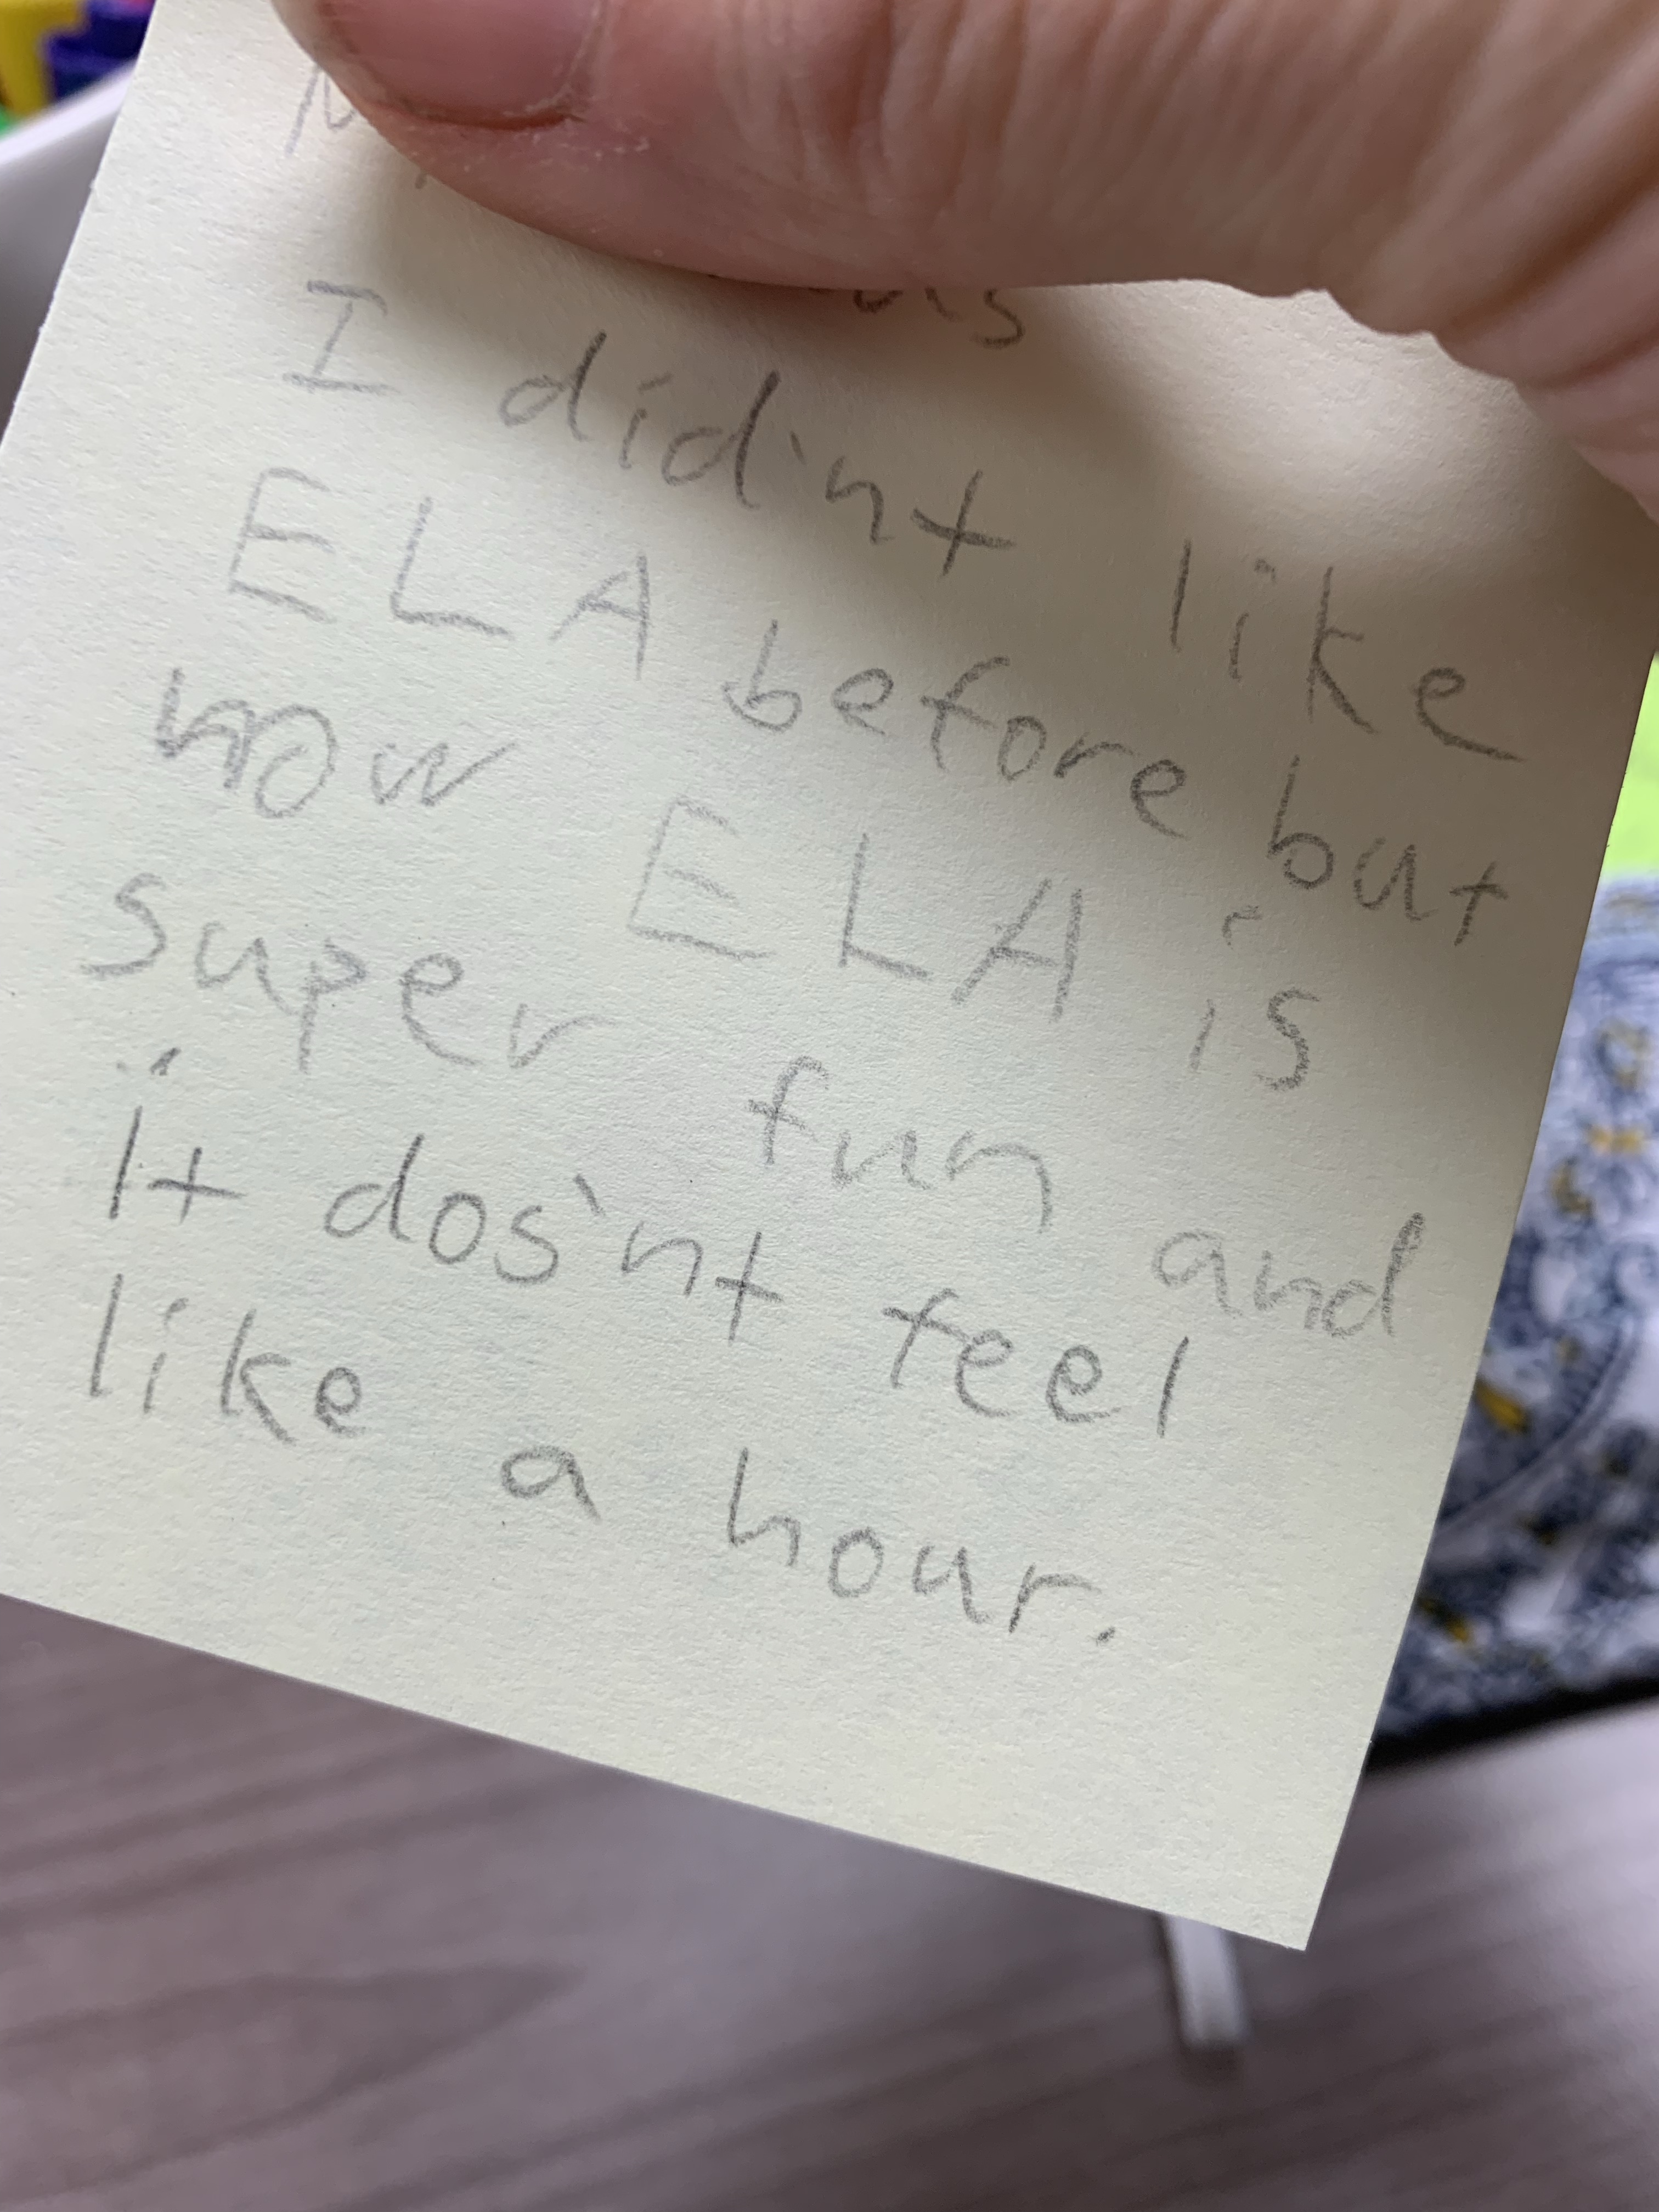 I did'nt like
ELA before but
now ELA is
super fun and
it dos'nt feel
like a hour.